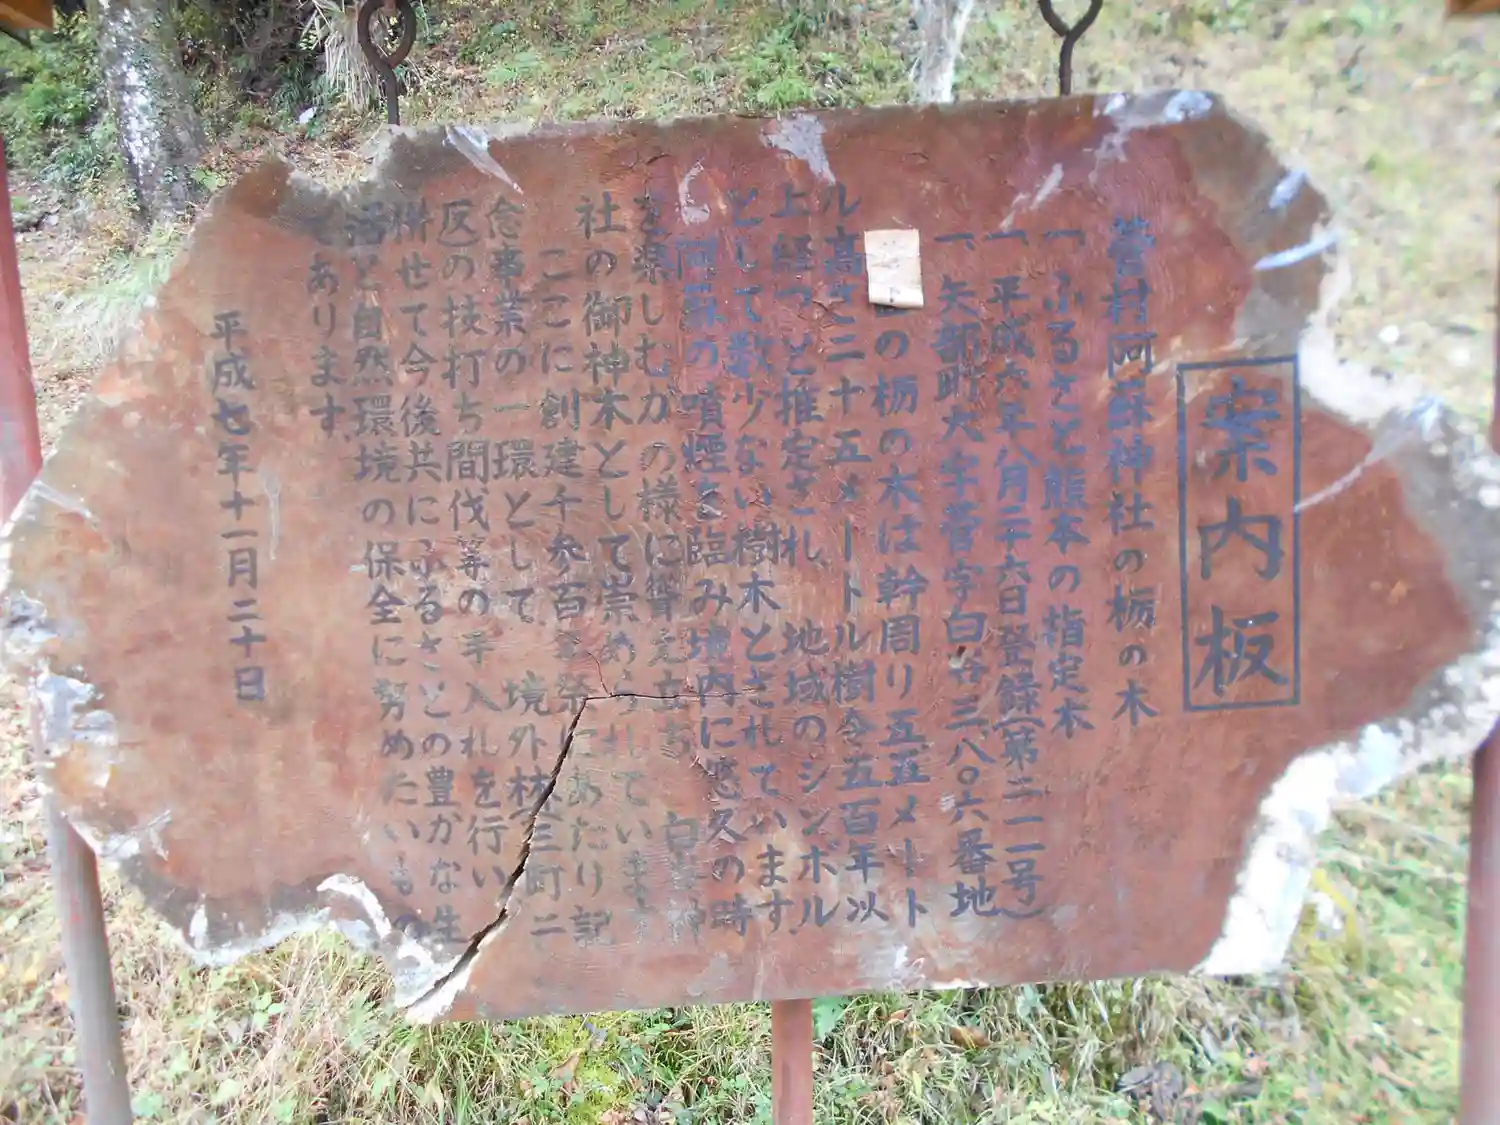 案内板
菅村阿蘇神社の栃の木
一 ふるさと熊本の指定木
一 平成六年八月二十六日登録(第二一一号)
一 矢部町大字菅字白谷三八〇六番地
の栃の木は幹周り五・五メート
ル高さ二十五メートル樹令五百年以
上経つと推定され、地域のシンボル
として数少ない樹木とされています。
阿蘇の噴煙を臨み境内に悠久の時
を楽しむかの様に聳え立ち 白 神
社の御神木として崇められています
ここに創建千参百 祭にあたり記
念事業の一環として、境外林三町二
反の枝打ち間伐等の手入れを行い
併せて今後共にふるさとの豊かな生
活と自然環境の保全に努めたいもの
であります。
平成七年十一月二十日